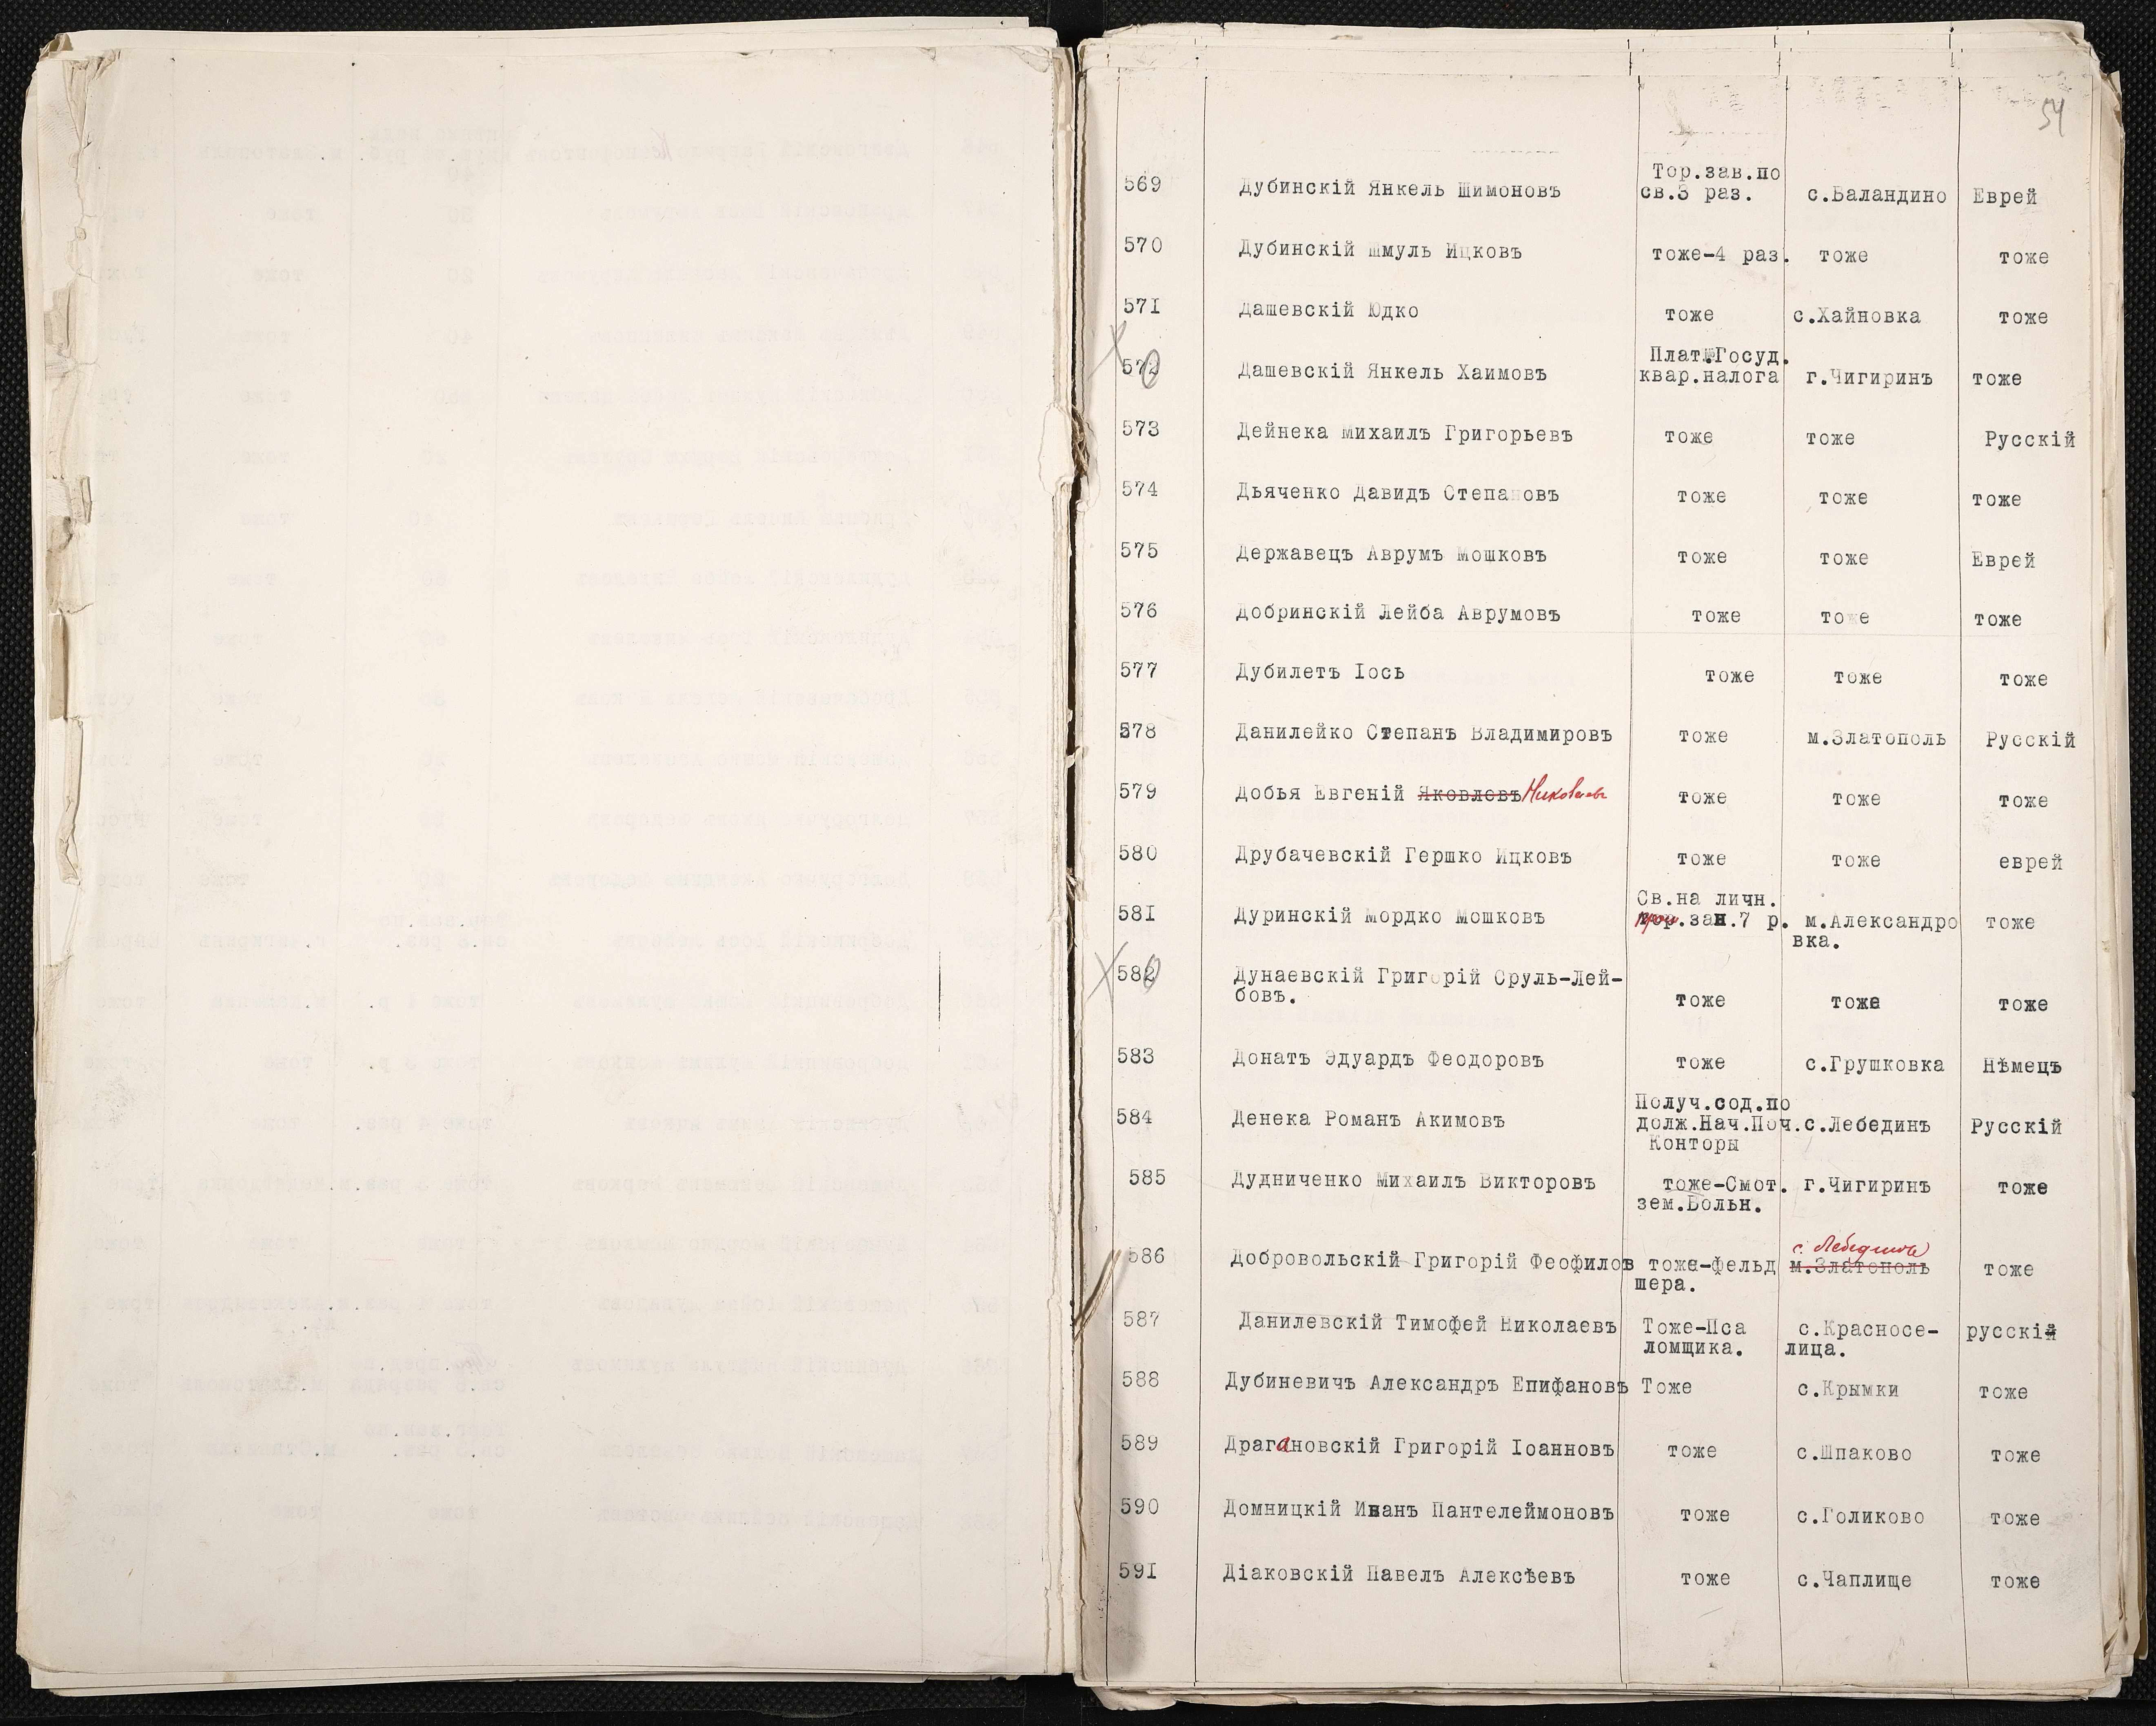 54
569 Дубинскій Янкель Шимоновъ Тор.зав.по св.3 раз. с.Баландино Еврей
570 Дубинскій Шмуль Ицковъ тоже-4 раз. тоже тоже
571 Дашевскій Юдко тоже с.Хайновка тоже
572 Дашевскій Янкель Хаимовъ Плат.Госуд. квар.налога г.Чигиринъ тоже
573 Дейнека Михаилъ Григорьевъ тоже тоже Русскій
574 Дьяченко Давидъ Степановъ тоже тоже тоже
575 Державецъ Аврумъ Мошковъ тоже тоже Еврей
576 Добринскій Лейба Аврумовъ тоже тоже тоже
577 Дубилетъ Іось тоже тоже тоже
578 Данилейко Степанъ Владимировъ тоже м.Златополь Русскій
579 Добья Евгеній Яковлевъ Николаевъ тоже тоже тоже
580 Друбачевскій Гершко Ицковъ тоже тоже еврей
581 Дуринскій Мордко Мошковъ Св.на личн. пром.зан.7 р. м.Александро
вка. тоже
582 Дунаевскій Григорій Сруль-Лей-
бовъ. тоже тоже тоже
583 Донатъ Эдуардъ Феодоровъ тоже с.Грушковка Нѣмецъ
584 Денека Романъ Акимовъ Получ.сод.по
долж.Нач.Поч. с.Лебединъ Русскій
Конторы
585 Дудниченко Михаилъ Викторовъ тоже-Смот. г.Чигиринъ тоже
зем.Больн.
с. Лебединъ
586 Добровольскій Григорій Феофилов тоже-фельд м.Златополь тоже
шера.
587 Данилевскій Тимофей Николаевъ Тоже-Пса с.Красносе- русскій
ломщика. лица.
588 Дубиневичъ Александръ Епифановъ Тоже с.Крымки тоже
589 Драгановскій Григорій Іоанновъ тоже с.Шпаково тоже
590 Домницкій Иванъ Пантелеймоновъ тоже с.Голиково тоже
591 Діаковскій Павелъ Алексѣевъ тоже с.Чаплище тоже